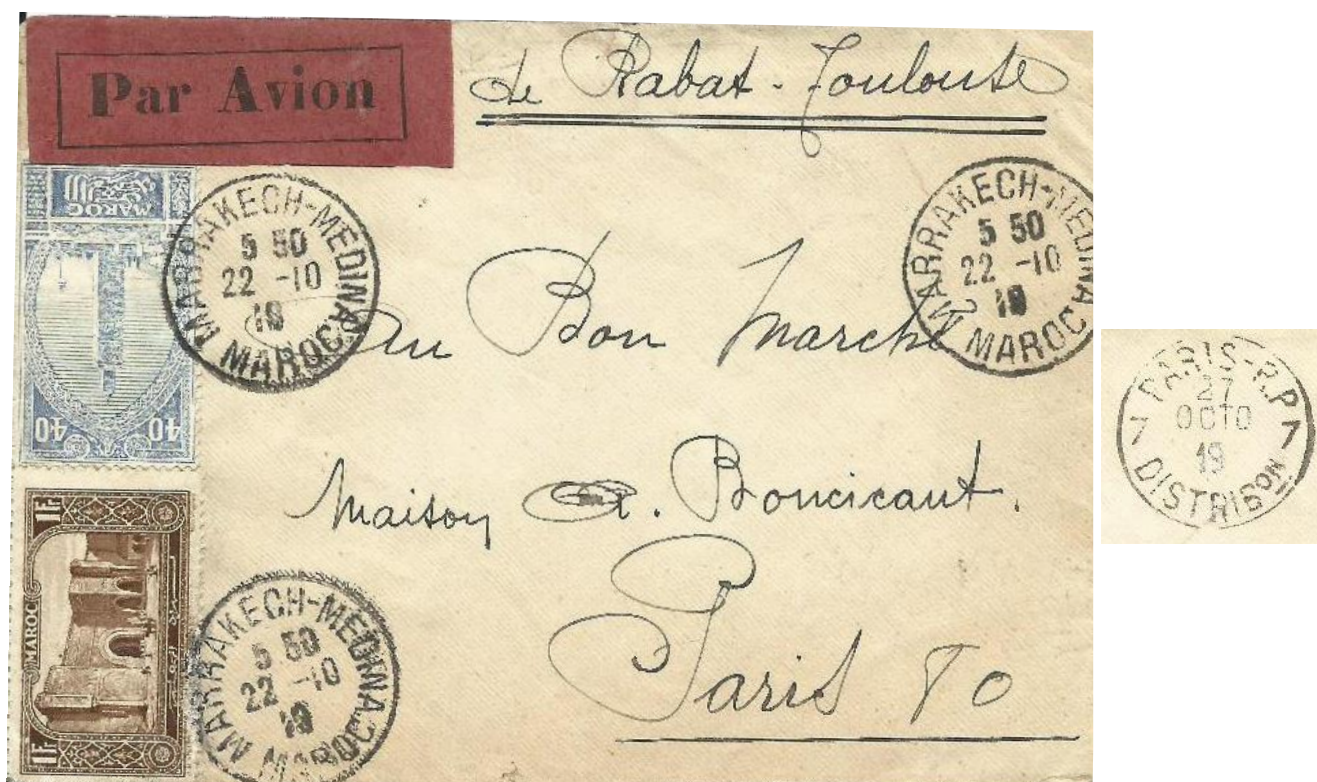 Par Avion
de Rabat-Toulouse
MAROC
40 40
MARRAKECH-MEDINA
5 50
22 -10
19
MAROC
MARRAKECH-MEDINA
5 50
22 -10
19
MAROC
Au Bon Marché
Maison A. Boucicaut.
Paris 7o
1F
MAROC
1F
MARRAKECH-MEDINA
5 50
22 -10
19
MAROC
PARIS-R.P
27
OCTO
7 7
19
DISTRIBON